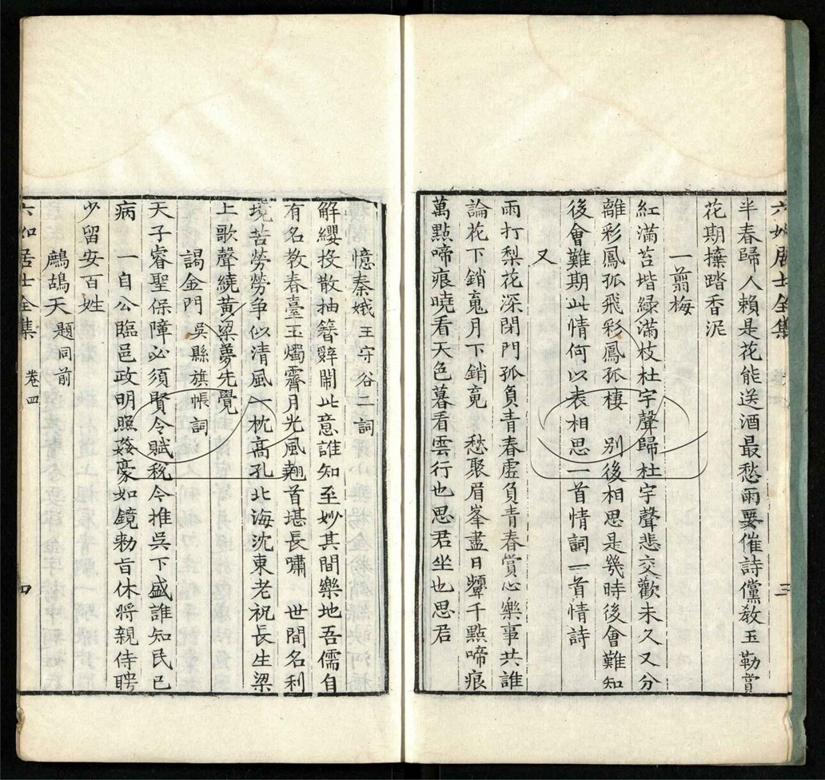 六如居士全集
三
半春歸人賴是花能送酒最愁雨要催詩儻教玉勒賞
花期擁踏香泥
一翦梅
紅滿苔堦綠滿枝杜宇聲歸杜宇聲悲交歡未久又分
離彩鳳孤飛彩鳳孤棲　別後相思是幾時後會難知
後會難期此情何以表相思一首情詞一首情詩
又
雨打梨花深閉門孤負青春虛負青春賞心樂事共誰
論花下銷䰟月下銷䰟　愁聚眉峯盡日顰千點啼痕
萬點啼痕曉看天色暮看雲行也思君坐也思君
憶秦娥王守谷二詞
解纓投散抽簪辭閙此意誰知至妙其間樂地吾儒自
有名教春臺玉燭霽月光風翹首堪長嘯　世間名利
境苦勞勞爭似清風一枕高孔北海沈東老祝長生梁
上歌聲繞黃粱夢先覺
謁金門吳縣旗帳詞
天子睿聖保障必須賢令賦稅今推吳下盛誰知民已
病　一自公臨邑政明照姦豪如鏡勅旨休將親侍聘
少留安百姓
鷓鴣天題同前
六如居士全集 卷四
四